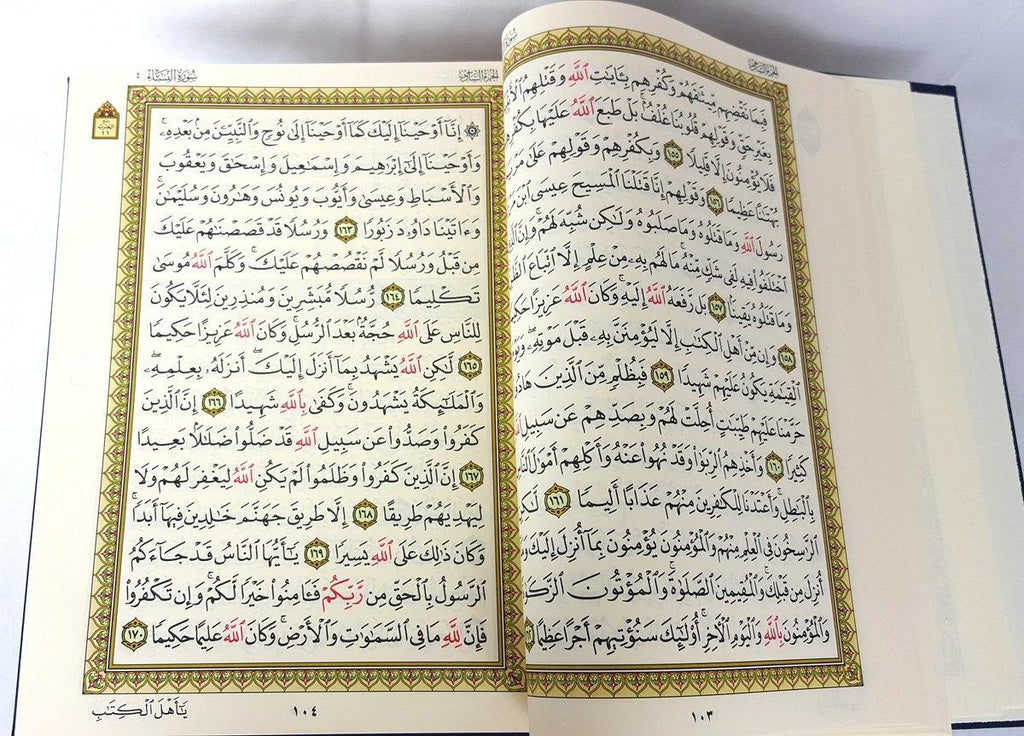 الجزء السادس
فَبِمَا نَقْضِهِم مِّيثَٰقَهُمْ وَكُفْرِهِم بِـَٔايَٰتِ ٱللَّهِ وَقَتْلِهِمُ
بِغَيْرِ حَقٍّ وَقَوْلِهِمْ قُلُوبُنَا غُلْفٌۢ بَلْ طَبَعَ ٱللَّهُ عَلَيْهَا بِكُفْرِهِمْ
فَلَا يُؤْمِنُونَ إِلَّا قَلِيلًا ١٥٥ وَبِكُفْرِهِمْ وَقَوْلِهِمْ عَلَىٰ
بُهْتَٰنًا عَظِيمًا ١٥٦ وَقَوْلِهِمْ إِنَّا قَتَلْنَا ٱلْمَسِيحَ عِيسَى ٱبْنَ
رَسُولَ ٱللَّهِ وَمَا قَتَلُوهُ وَمَا صَلَبُوهُ وَلَٰكِن شُبِّهَ لَهُمْ وَإِنَّ
ٱخْتَلَفُوا۟ فِيهِ لَفِى شَكٍّ مِّنْهُ مَا لَهُم بِهِۦ مِنْ عِلْمٍ إِلَّا ٱتِّبَاعَ
وَمَا قَتَلُوهُ يَقِينًۢا ١٥٧ بَل رَّفَعَهُ ٱللَّهُ إِلَيْهِ وَكَانَ ٱللَّهُ عَزِيزًا حَكِيمًا
١٥٨ وَإِن مِّنْ أَهْلِ ٱلْكِتَٰبِ إِلَّا لَيُؤْمِنَنَّ بِهِۦ قَبْلَ مَوْتِهِۦ
ٱلْقِيَٰمَةِ يَكُونُ عَلَيْهِمْ شَهِيدًا ١٥٩ فَبِظُلْمٍ مِّنَ ٱلَّذِينَ هَادُوا۟
حَرَّمْنَا عَلَيْهِمْ طَيِّبَٰتٍ أُحِلَّتْ لَهُمْ وَبِصَدِّهِمْ عَن سَبِيلِ
كَثِيرًا ١٦٠ وَأَخْذِهِمُ ٱلرِّبَوٰا۟ وَقَدْ نُهُوا۟ عَنْهُ وَأَكْلِهِمْ أَمْوَٰلَ
بِٱلْبَٰطِلِ وَأَعْتَدْنَا لِلْكَٰفِرِينَ مِنْهُمْ عَذَابًا أَلِيمًا ١٦١
ٱلرَّٰسِخُونَ فِى ٱلْعِلْمِ مِنْهُمْ وَٱلْمُؤْمِنُونَ يُؤْمِنُونَ بِمَآ أُنزِلَ إِلَيْكَ
أُنزِلَ مِن قَبْلِكَ وَٱلْمُقِيمِينَ ٱلصَّلَوٰةَ وَٱلْمُؤْتُونَ
وَٱلْمُؤْمِنُونَ بِٱللَّهِ وَٱلْيَوْمِ ٱلْءَاخِرِ أُو۟لَٰٓئِكَ سَنُؤْتِيهِمْ أَجْرًا عَظِيمًا
١٠٣
الجزء السادس
سورة النساء ٤
إِنَّآ أَوْحَيْنَآ إِلَيْكَ كَمَآ أَوْحَيْنَآ إِلَىٰ نُوحٍ وَٱلنَّبِيِّـۧنَ مِنۢ بَعْدِهِۦ ۚ
وَأَوْحَيْنَآ إِلَىٰٓ إِبْرَٰهِيمَ وَإِسْمَٰعِيلَ وَإِسْحَٰقَ وَيَعْقُوبَ
وَٱلْأَسْبَاطِ وَعِيسَىٰ وَأَيُّوبَ وَيُونُسَ وَهَٰرُونَ وَسُلَيْمَٰنَ ۚ
وَءَاتَيْنَا دَاوُۥدَ زَبُورًا ١٦٣ وَرُسُلًا قَدْ قَصَصْنَٰهُمْ عَلَيْكَ
مِن قَبْلُ وَرُسُلًا لَّمْ نَقْصُصْهُمْ عَلَيْكَ ۚ وَكَلَّمَ ٱللَّهُ مُوسَىٰ
تَكْلِيمًا ١٦٤ رُّسُلًا مُّبَشِّرِينَ وَمُنذِرِينَ لِئَلَّا يَكُونَ
لِلنَّاسِ عَلَى ٱللَّهِ حُجَّةٌۢ بَعْدَ ٱلرُّسُلِ ۚ وَكَانَ ٱللَّهُ عَزِيزًا حَكِيمًا
١٦٥ لَّٰكِنِ ٱللَّهُ يَشْهَدُ بِمَآ أَنزَلَ إِلَيْكَ ۖ أَنزَلَهُۥ بِعِلْمِهِۦ ۖ
وَٱلْمَلَٰٓئِكَةُ يَشْهَدُونَ ۚ وَكَفَىٰ بِٱللَّهِ شَهِيدًا ١٦٦ إِنَّ ٱلَّذِينَ
كَفَرُوا۟ وَصَدُّوا۟ عَن سَبِيلِ ٱللَّهِ قَدْ ضَلُّوا۟ ضَلَٰلًۢا بَعِيدًا
١٦٧ إِنَّ ٱلَّذِينَ كَفَرُوا۟ وَظَلَمُوا۟ لَمْ يَكُنِ ٱللَّهُ لِيَغْفِرَ لَهُمْ وَلَا
لِيَهْدِيَهُمْ طَرِيقًا ١٦٨ إِلَّا طَرِيقَ جَهَنَّمَ خَٰلِدِينَ فِيهَآ أَبَدًا ۚ
وَكَانَ ذَٰلِكَ عَلَى ٱللَّهِ يَسِيرًا ١٦٩ يَٰٓأَيُّهَا ٱلنَّاسُ قَدْ جَآءَكُمُ
ٱلرَّسُولُ بِٱلْحَقِّ مِن رَّبِّكُمْ فَـَٔامِنُوا۟ خَيْرًا لَّكُمْ ۚ وَإِن تَكْفُرُوا۟
فَإِنَّ لِلَّهِ مَا فِى ٱلسَّمَٰوَٰتِ وَٱلْأَرْضِ ۚ وَكَانَ ٱللَّهُ عَلِيمًا حَكِيمًا ١٧٠
يَٰٓأَهْلَ ٱلْكِتَٰبِ
١٠٤